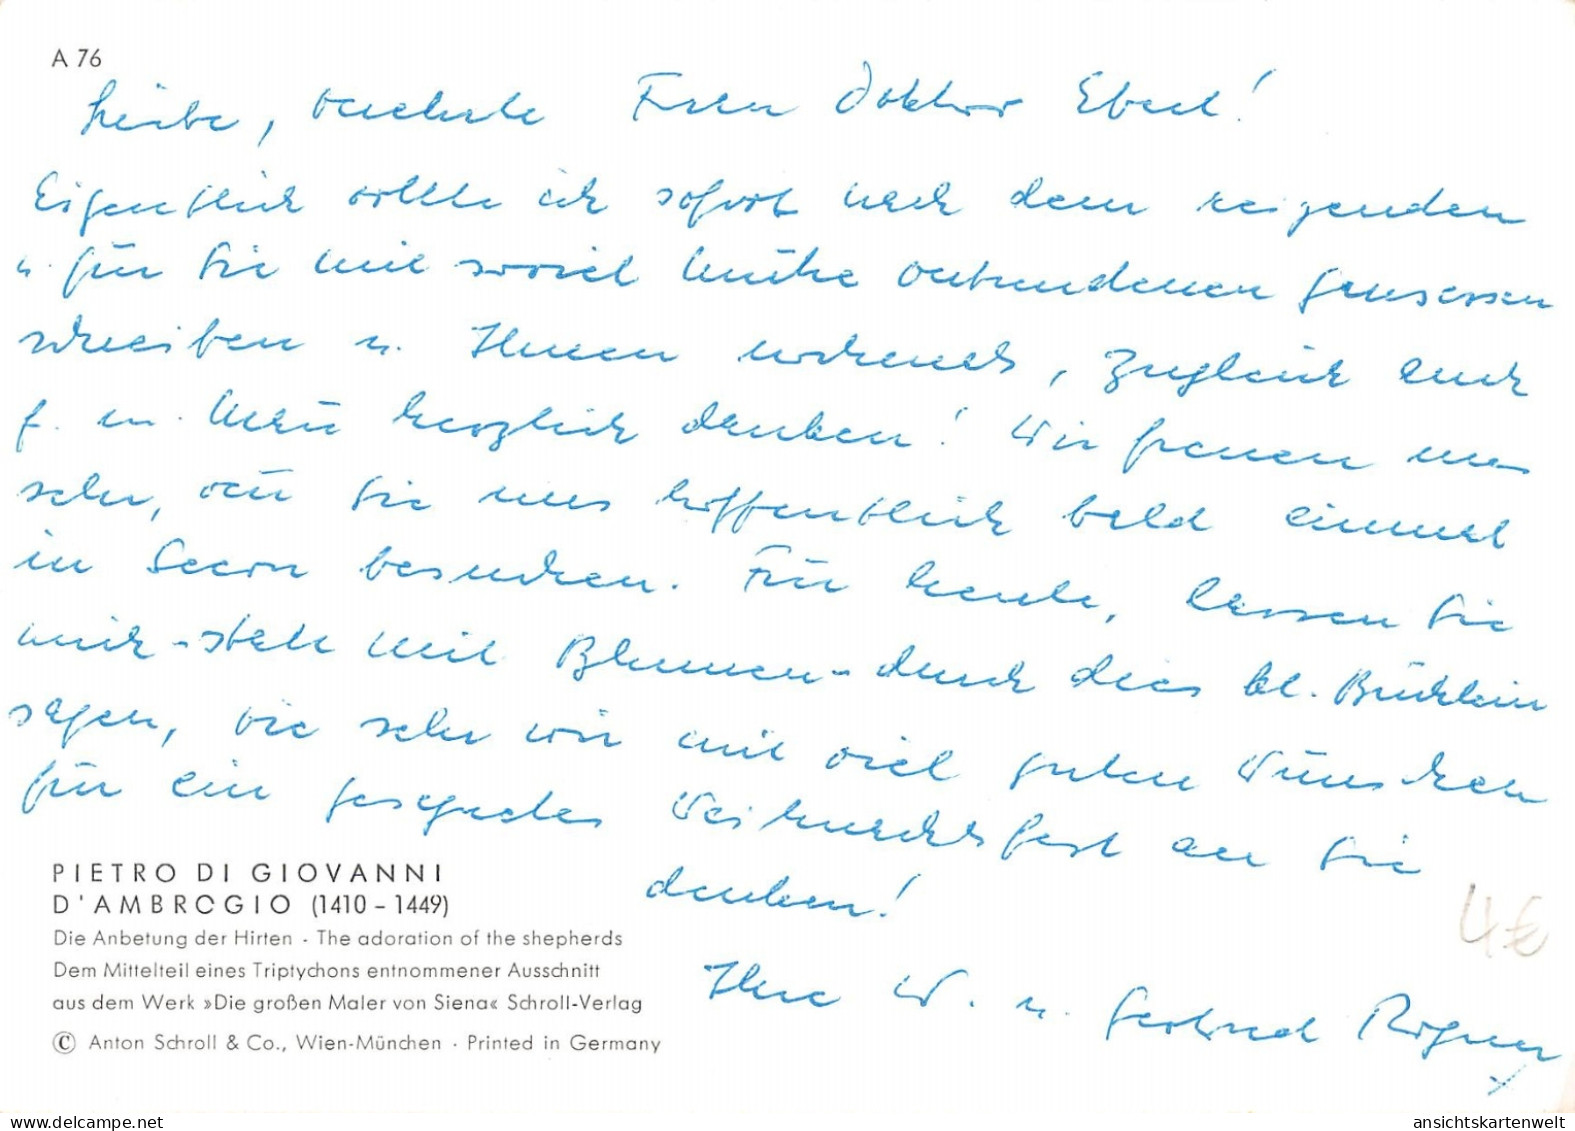 A 76
Liebe, verehrte Frau Doktor Ebert!
Eigentlich wollte ich sofort nach dem reizenden
u. für Sie mit soviel Mühe verbundenen Gansessen
schreiben u. Ihnen nochmals, zugleich auch
f. m. herzlich danken! Wir freuen uns
sehr, wenn Sie uns hoffentlich bald einmal
in Seeon besuchen. Für heute, lassen Sie
mich - statt mit Blumen - durch dies kl. Büchlein
sagen, wie sehr wir mit viel guten Wünschen
für ein gesegnetes Weihnachtsfest an Sie
denken!
Ihre W. u. Gertrud
PIETRO DI GIOVANNI
D'AMBROGIO (1410 – 1449)
Die Anbetung der Hirten · The adoration of the shepherds
Dem Mittelteil eines Triptychons entnommener Ausschnitt
aus dem Werk »Die großen Maler von Siena« Schroll-Verlag
© Anton Schroll & Co., Wien-München · Printed in Germany
4€
ansichtskartenwelt